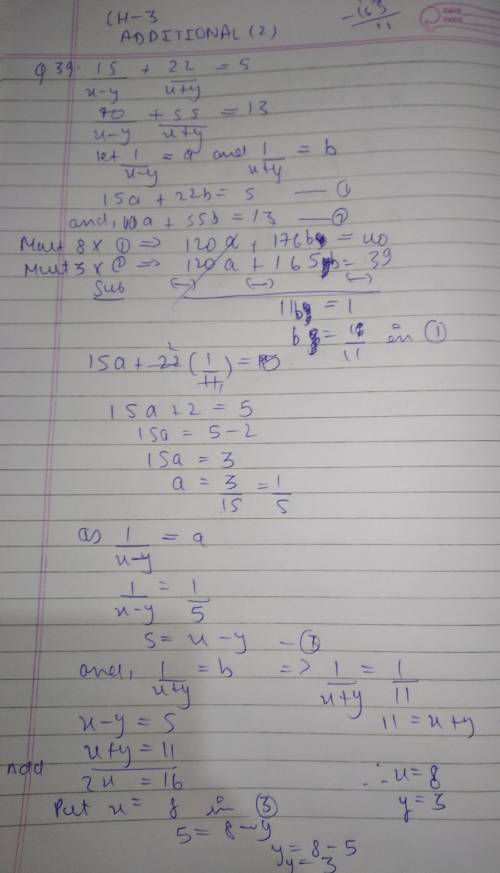 CH-3
ADDITIONAL (2)
-163/11
DATE
PAGE
Q 39. 15/(x-y) + 22/(x+y) = 5
/(x-y) + 55/(x+y) = 13
let 1/(x-y) = a and 1/(x+y) = b
15a + 22b = 5 — ①
and, 40a + 55b = 13 — ②
Mult 8 x ① => 120a + 176b = 40
Mult 3 x ② => 120a + 165b = 39
Sub (-) (-) (-)
11b = 1
b = 1/11 in ①
15a + 22 (1/11) = 5
2
1
15a + 2 = 5
15a = 5 - 2
15a = 3
a = 3/15 = 1/5
as 1/(x-y) = a
1/(x-y) = 1/5
5 = x - y — ③
and, 1/(x+y) = b => 1/(x+y) = 1/11
x - y = 5 11 = x + y
Add x + y = 11
2x = 16 ∴ x = 8
y = 3
Put x = 8 in ③
5 = 8 - y
y = 8 - 5
y = 3